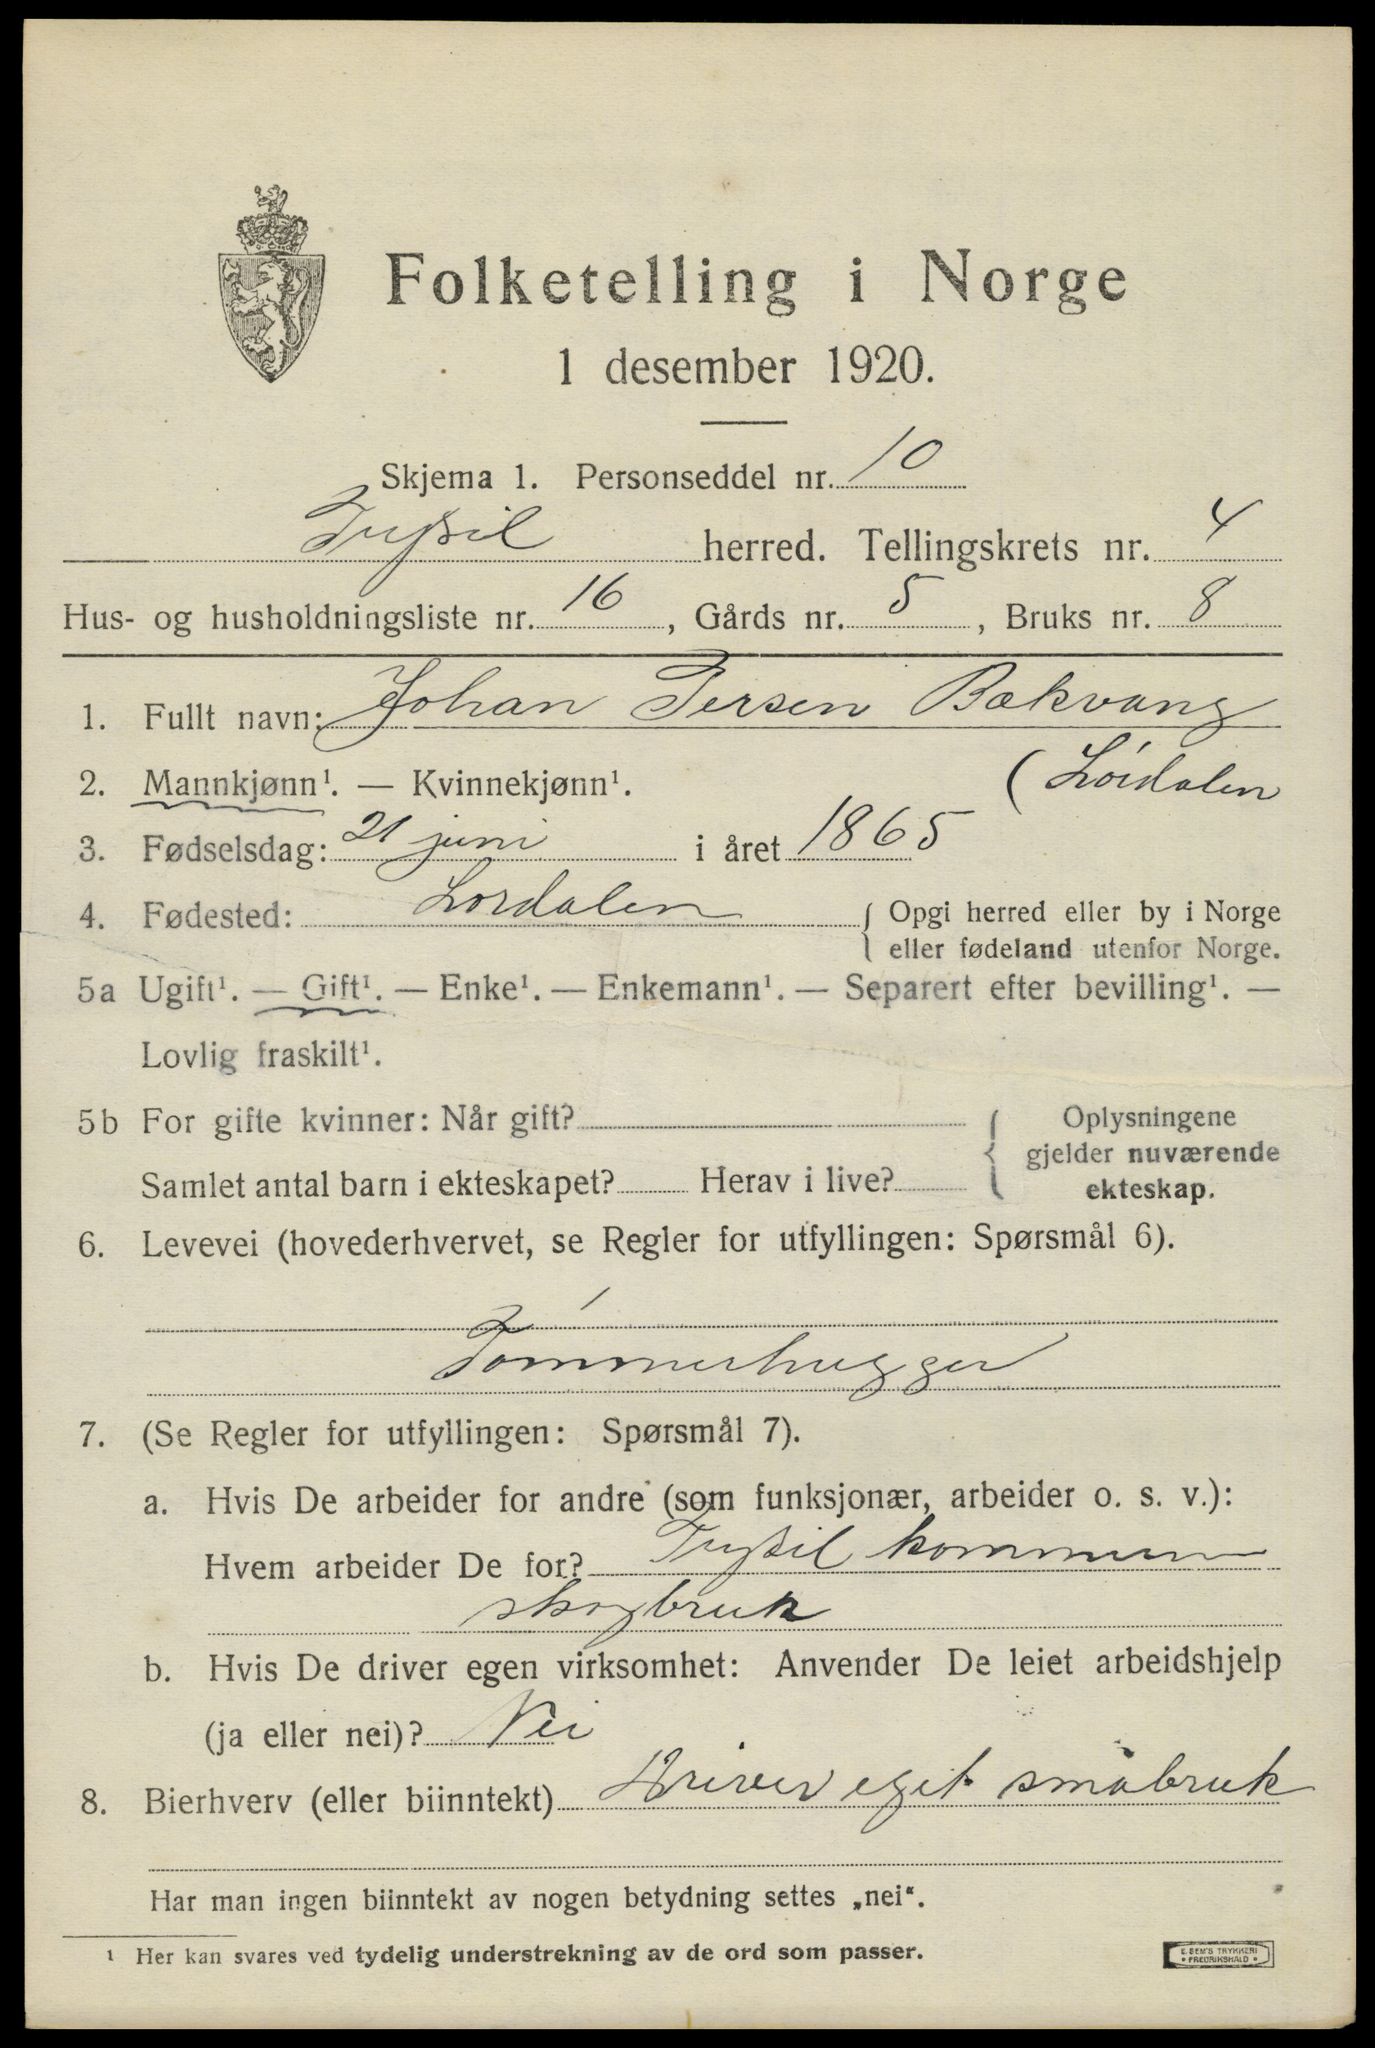 Folketelling i Norge
1 desember 1920.
Skjema 1. Personseddel nr. 10
Trysil herred. Tellingskrets nr. 4
Hus- og husholdningsliste nr. 16, Gårds nr. 5, Bruks nr. 8
1. Fullt navn: Johan Persen Bækvang
(Lördalen
2. Mannkjønn¹. — Kvinnekjønn¹.
3. Fødselsdag: 21 juni i året 1865
4. Fødested: Lordalen { Opgi herred eller by i Norge
eller fødeland utenfor Norge.
5a Ugift¹. — Gift¹. — Enke¹. — Enkemann¹. — Separert efter bevilling¹. —
Lovlig fraskilt¹.
5b For gifte kvinner: Når gift?
Samlet antal barn i ekteskapet? Herav i live?
{ Oplysningene
gjelder nuværende
ekteskap.
6. Levevei (hovederhvervet, se Regler for utfyllingen: Spørsmål 6).
Tömmerhugger
7. (Se Regler for utfyllingen: Spørsmål 7).
a. Hvis De arbeider for andre (som funksjonær, arbeider o. s. v.):
Hvem arbeider De for? Trysil kommune
skogbruk
b. Hvis De driver egen virksomhet: Anvender De leiet arbeidshjelp
(ja eller nei)? Nei
8. Bierhverv (eller biinntekt) Driver eget småbruk
Har man ingen biinntekt av nogen betydning settes „nei“.
¹ Her kan svares ved tydelig understrekning av de ord som passer.
E. SEM'S TRYKKERI
• FREDRIKSHALD •